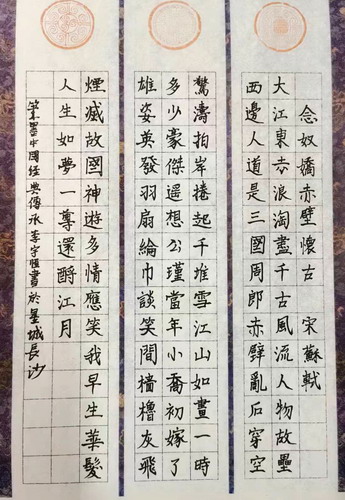 念奴嬌赤壁懷古 宋 蘇軾
大江東去浪淘盡千古風流人物故壘
西邊人道是三國周郎赤壁亂石穿空
驚濤拍岸捲起千堆雪江山如畫一時
多少豪傑遥想公瑾當年小喬初嫁了
雄姿英發羽扇綸巾談笑間檣櫓灰飛
煙滅故國神遊多情應笑我早生華髮
人生如夢一尊還酹江月
筆墨中國经典傳承李宇恒書於星城長沙